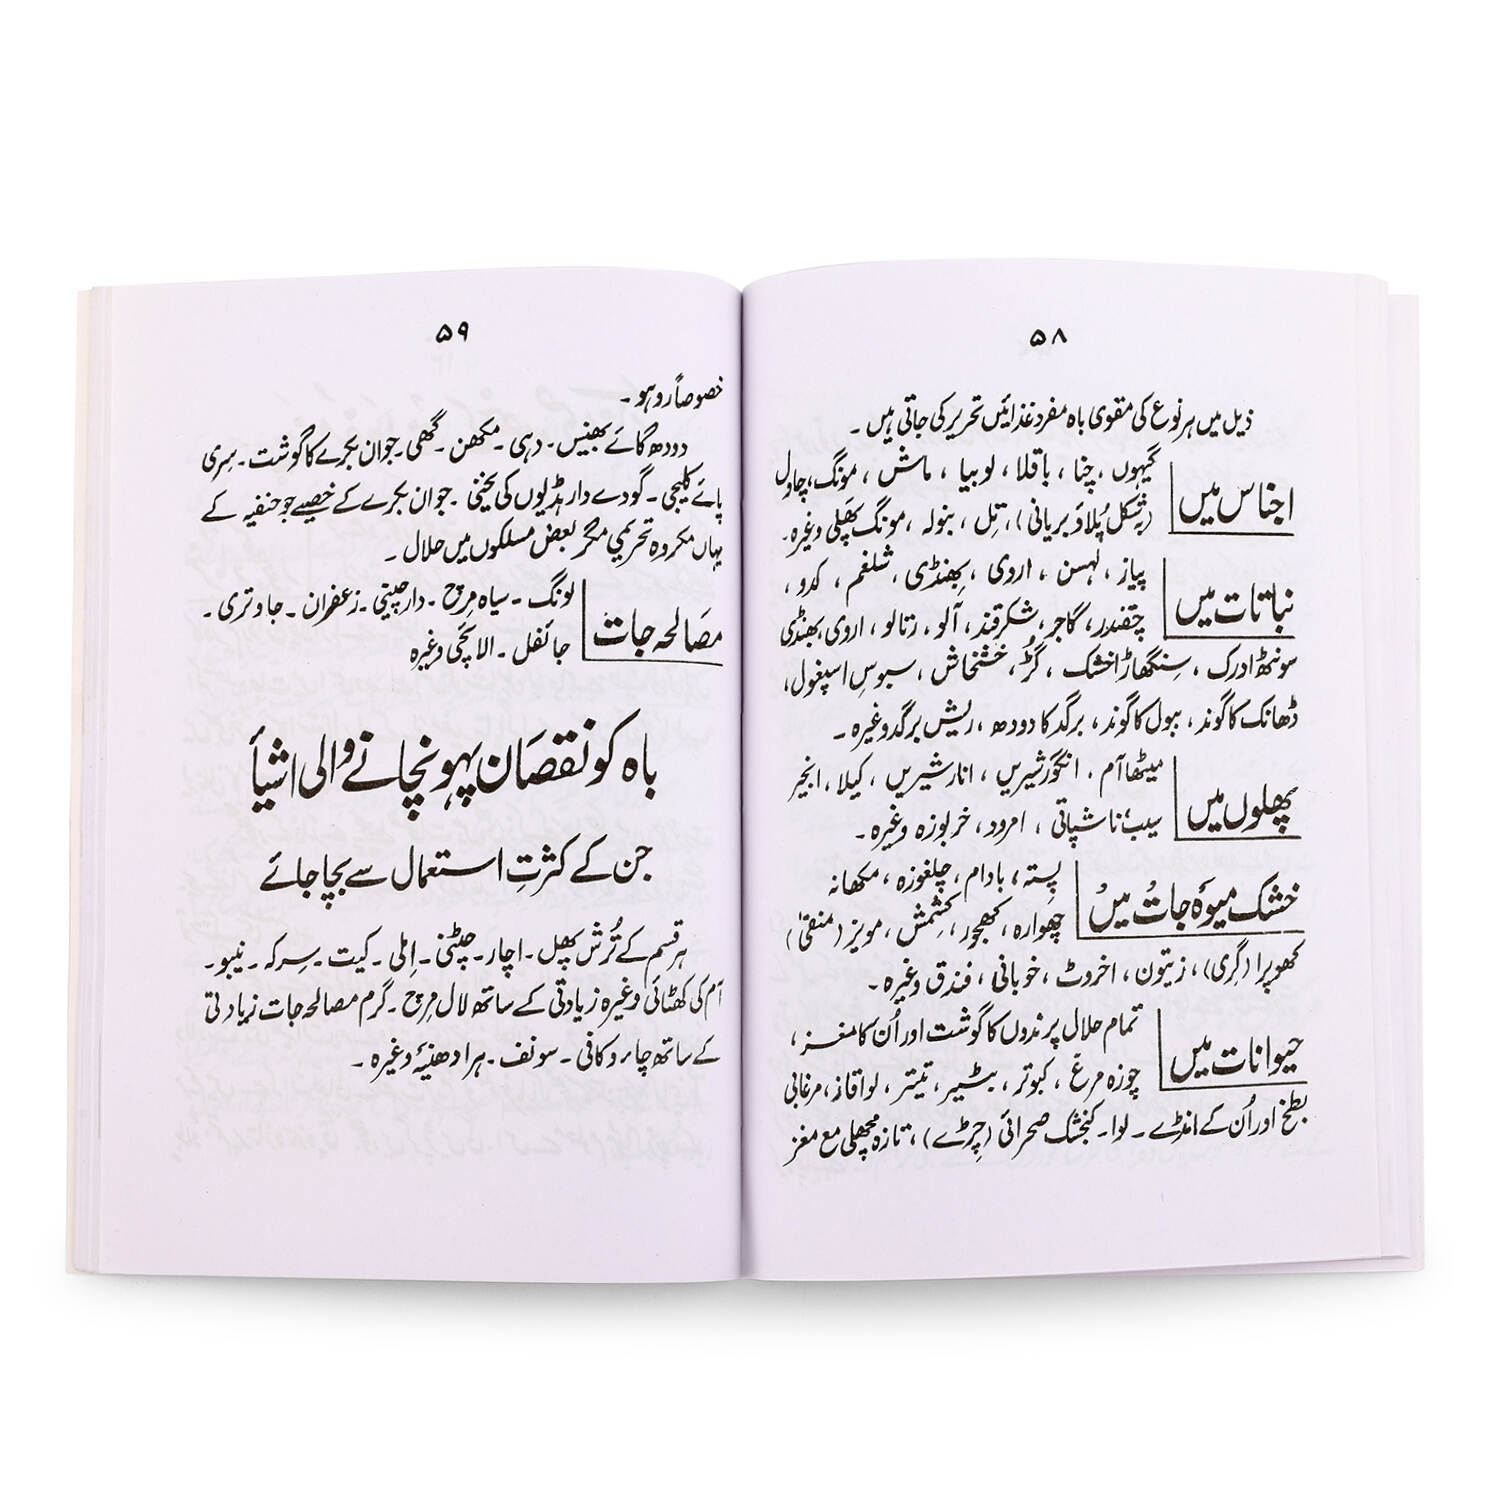 ۵۸
ذیل میں ہر نوع کی مقوی باہ مفرد غذائیں تحریر کی جاتی ہیں۔
اجناس میں
گیہوں، چنا، باقلا، لوبیا، ماش، مونگ، چاول
(بشکل پُلاؤ بریانی)، تِل، بنولہ، مونگ پھلی وغیرہ۔
نباتات میں
پیاز، لہسن، اروی، بھنڈی، شلغم، کدو،
چقندر، گاجر، شکرقند، آلو، رتالو، اروی، بھنڈی
سونٹھ ادرک، سِنگھاڑا خشک، گُڑ، خشخاش، سبوسِ اسپغول،
ڈھانک کا گوند، ببول کا گوند، برگد کا دودھ، ریش برگد وغیرہ۔
پھلوں میں
میٹھا آم، انگور شیریں، انار شیریں، کیلا، انجیر
سیب، ناشپاتی، امرود، خربوزہ وغیرہ۔
خشک میوہ جات میں
پِستہ، بادام، چلغوزہ، مکھانہ
چھوارہ، کھجور، کِشمش، مویز (منقیٰ)
کھوپرا (گری)، زیتون، اخروٹ، خوبانی، فندق وغیرہ۔
حیوانات میں
تمام حلال پرندوں کا گوشت اور اُن کا مغز،
چوزہ مرغ، کبوتر، بٹیر، تیتر، لوا قاز، مرغابی
بطخ اور اُن کے انڈے۔ لوا۔ کنجشک صحرائی (چِڑے)، تازہ مچھلی مع مغز
۵۹
خصوصاً روہو۔
دودھ گائے بھینس۔ دہی۔ مکھن۔ گھی۔ جوان بکرے کا گوشت۔ سِری
پائے کلیجی۔ گودے دار ہڈیوں کی یخنی۔ جوان بکرے کے خصیے جو حنفیہ کے
یہاں مکروہ تحریمی مگر بعض مسلکوں میں حلال۔
مصالحہ جات
لونگ۔ سیاہ مرچ۔ دارچینی۔ زعفران۔ جاوتری۔
جائفل۔ الائچی وغیرہ
باہ کو نقصان پہونچانے والی اشیأ
جن کے کثرتِ استعمال سے بچا جائے
ہر قسم کے تُرش پھل۔ اچار۔ چٹنی۔ اِملی۔ کیت۔ سِرکہ۔ نیبو۔
آم کی کھٹائی وغیرہ زیادتی کے ساتھ لال مرچ۔ گرم مصالحہ جات زیادتی
کے ساتھ چاء و کافی۔ سونف۔ ہرا دھنیٔہ وغیرہ۔